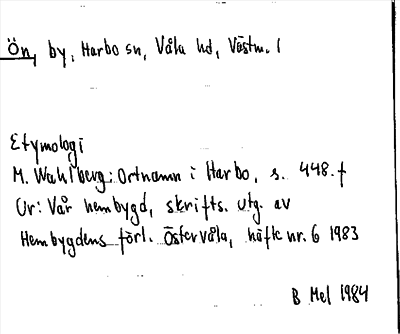 Ön, by, Harbo sn, Våla hd, Västm. l
Etymologi
M. Wahlberg: Ortnamn i Harbo, s. 448.f
Ur: Vår hembygd, skrifts. utg. av
Hembygdens förl. Östervåla, häfte nr. 6 1983
B Mel 1984